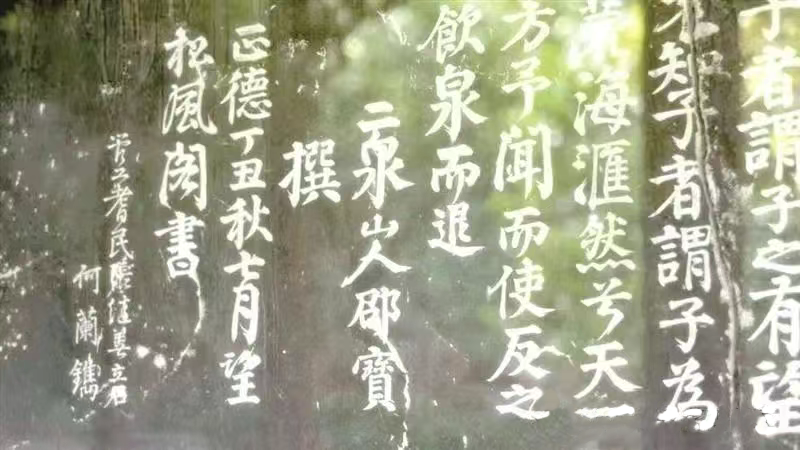 子者謂子之有望
知子者謂子為
海滙然兮天一
方予聞而使反之
飲泉而退
二泉山人邵寶
撰
正德丁丑秋七月望
松風閣書
者民善立石
何蘭鐫